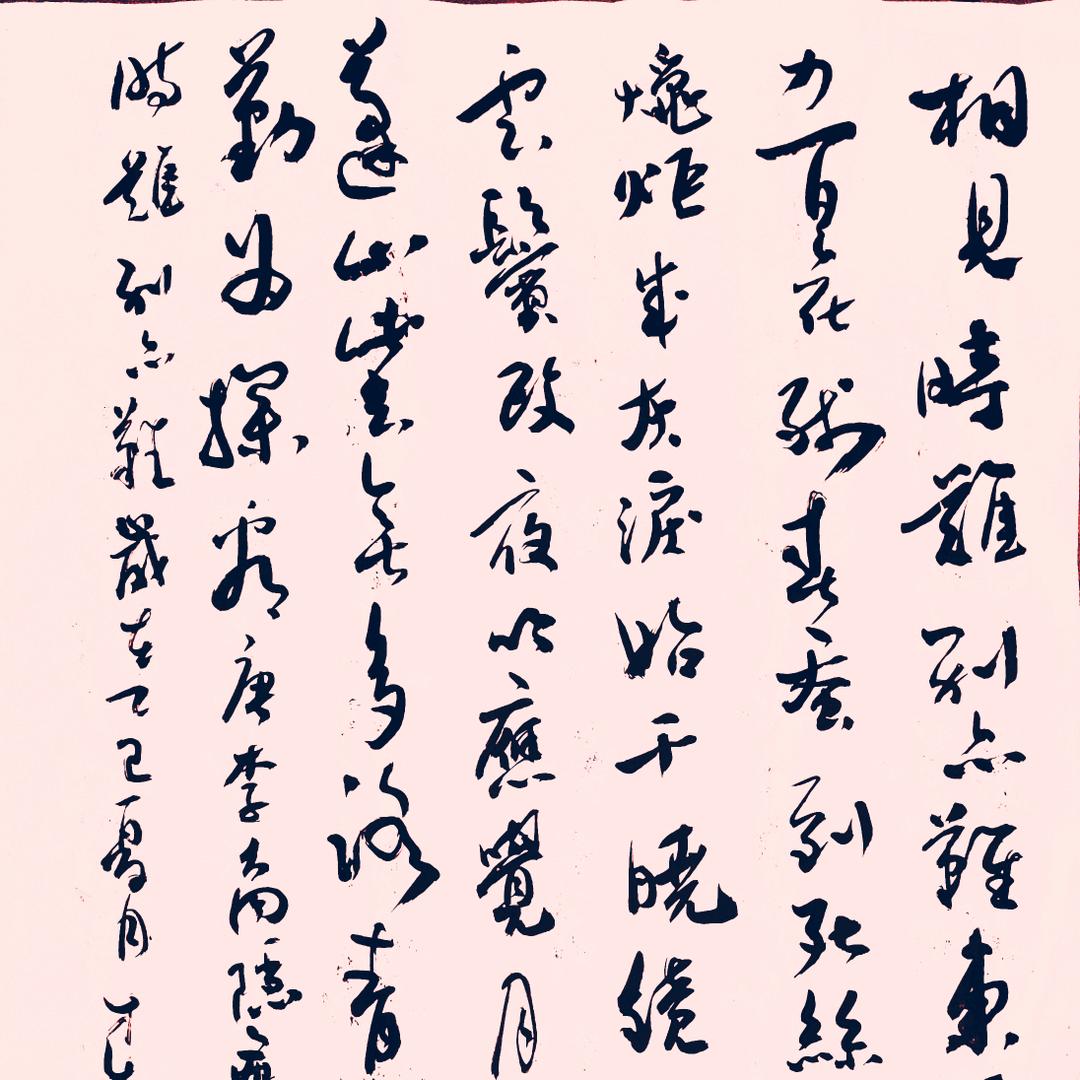 相見時難別亦難東
力百花殘春蠶到死絲
蠟炬成灰淚始干曉鏡
雲鬢改夜吟應覺月
蓬山此去無多路青
勤為探看唐李商隱
時難別亦難歲在乙巳夏月